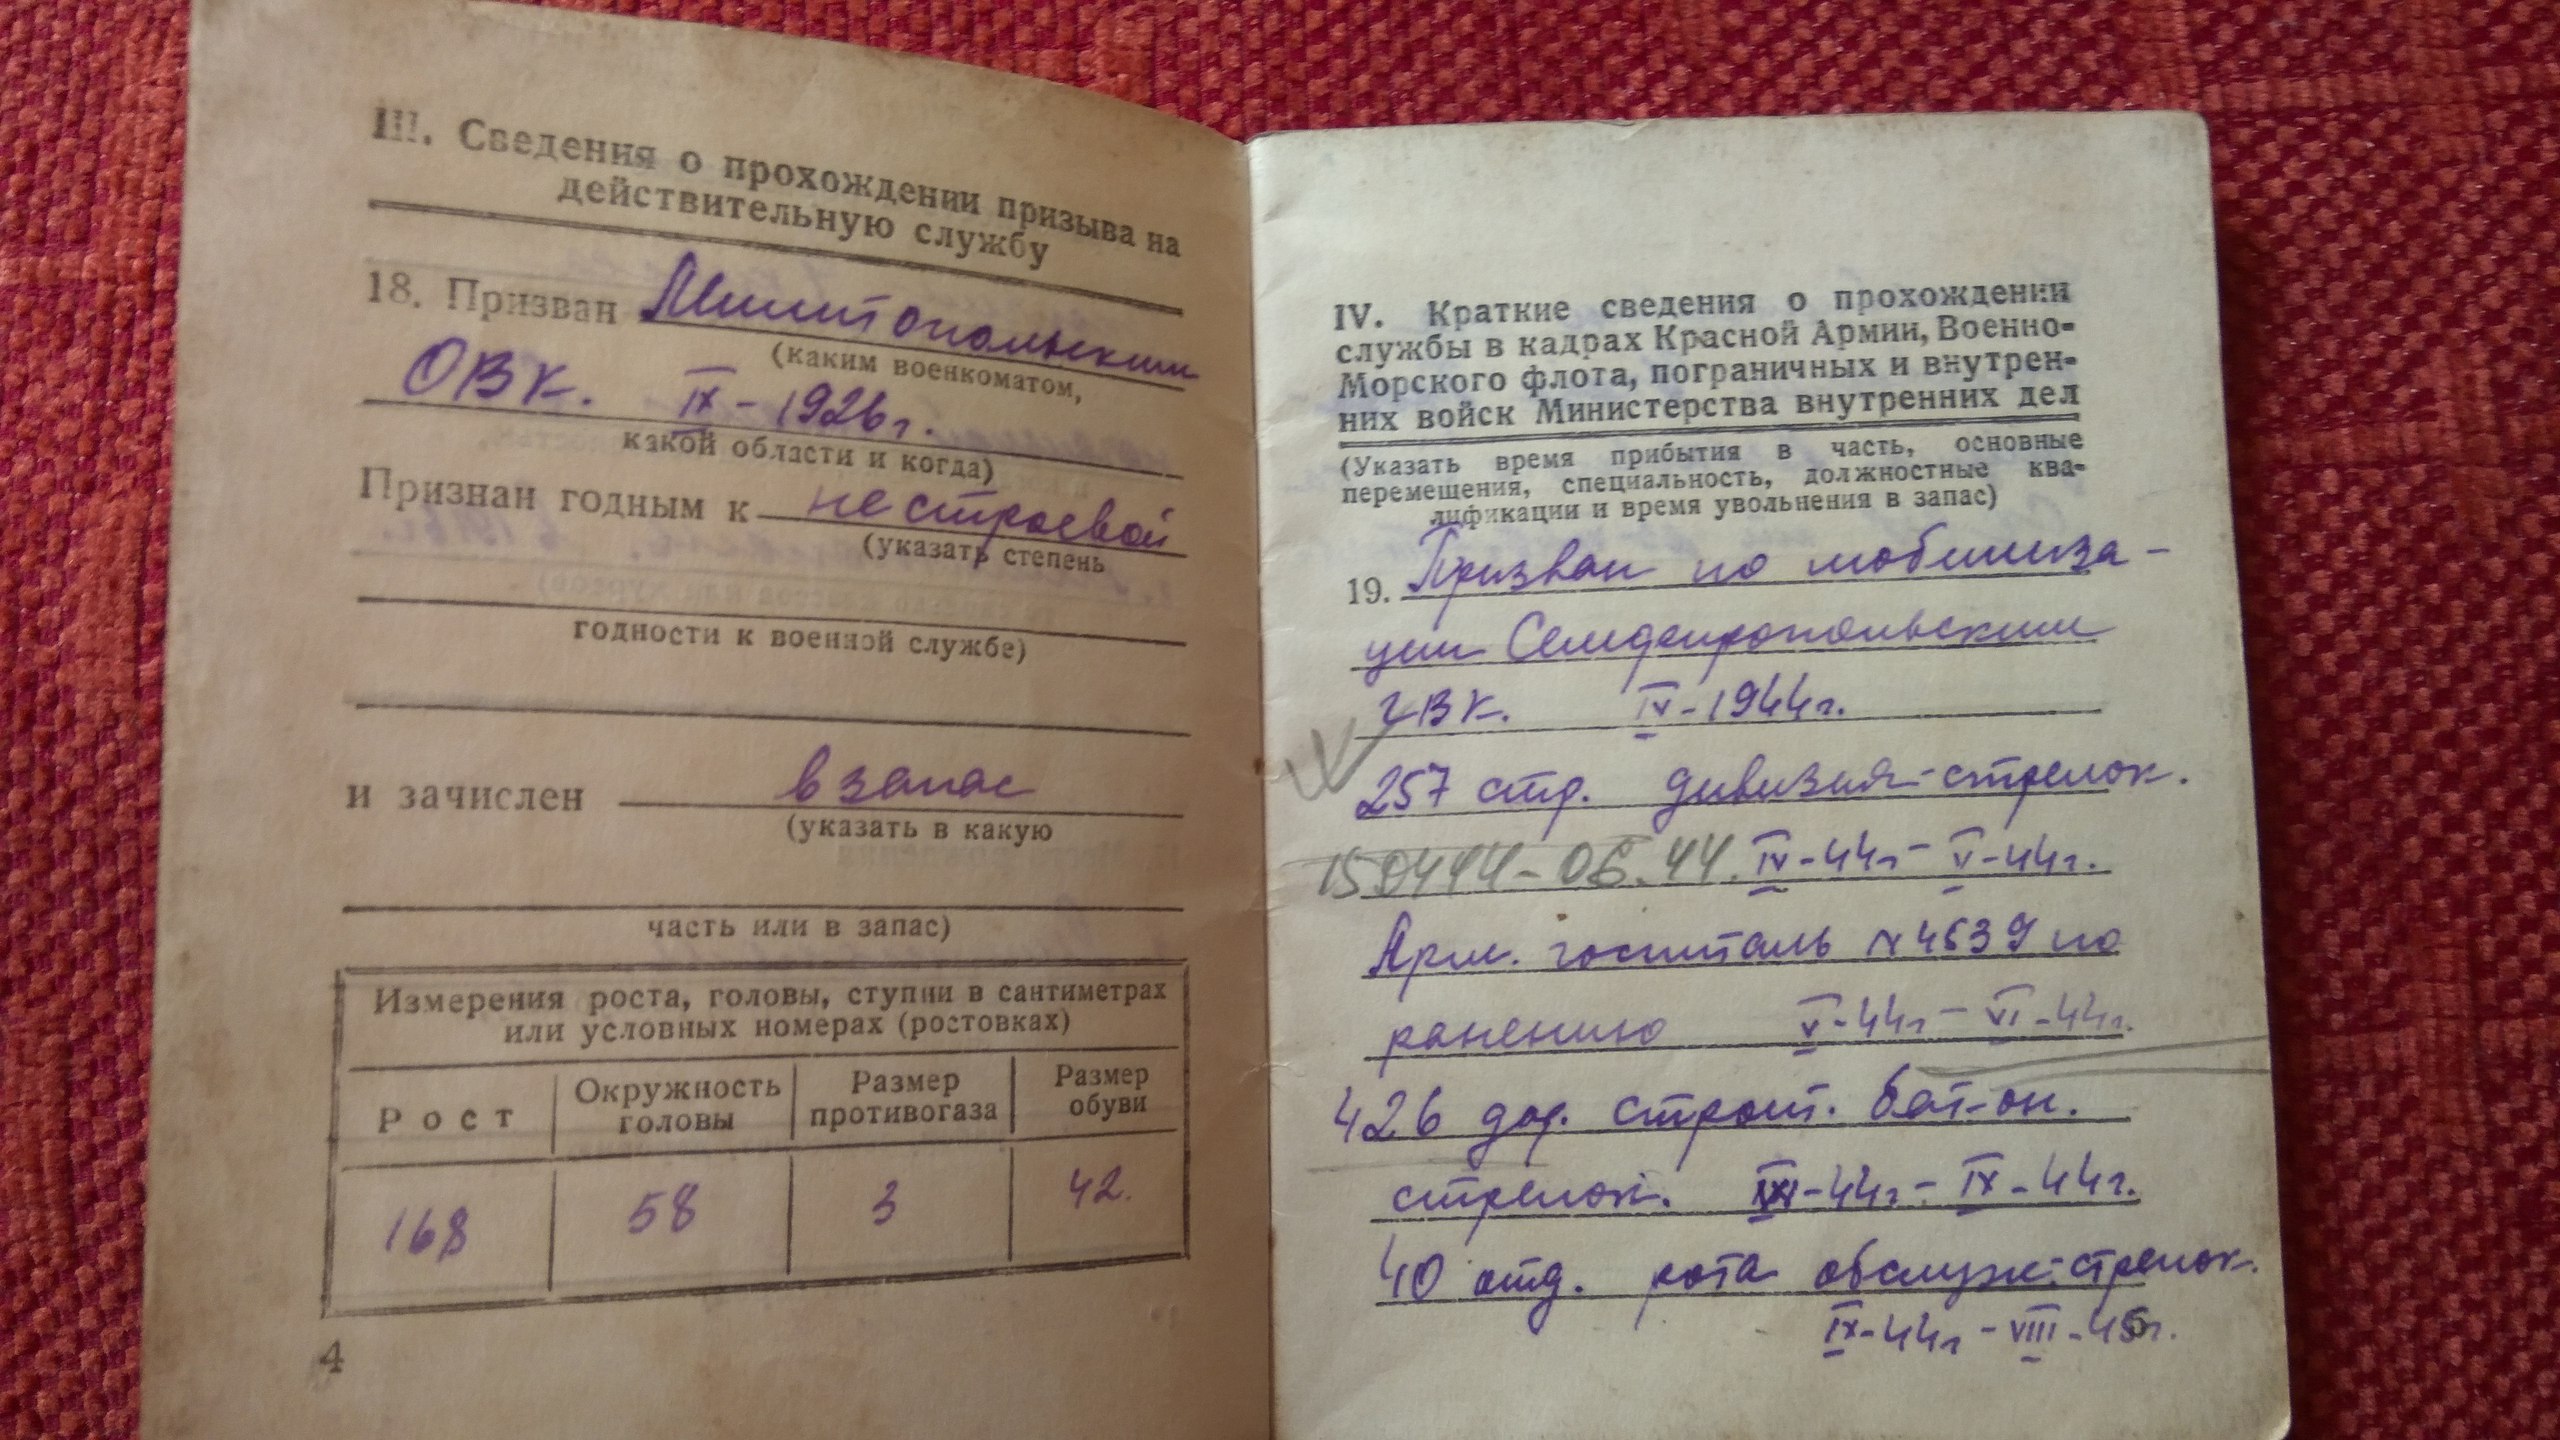 III. Сведения о прохождении призыва на
действительную службу
18. Призван Мелитопольским
(каким военкоматом,
ОВК. IX-1926г.
какой области и когда)
Признан годным к нестроевой
(указать степень
годности к военной службе)
и зачислен в запас
(указать в какую
часть или в запас)
Измерения роста, головы, ступни в сантиметрах
или условных номерах (ростовках)
Рост
Окружность
головы
Размер
противогаза
Размер
обуви
168 58 3 42.
4
IV. Краткие сведения о прохождении
службы в кадрах Красной Армии, Военно-
Морского флота, пограничных и внутрен-
них войск Министерства внутренних дел
(Указать время прибытия в часть, основные
перемещения, специальность, должностные ква-
лификации и время увольнения в запас)
19. Призван по мобилиза-
ции Симферопольским
ГВК. IV-1944г.
257 стр. дивизия-стрелок.
150444-06.44. IV-44г-V-44г.
Арм. госпиталь N4639 по
ранению V-44г-VI-44г.
426 дор. строит. бат-он.
стрелок. VI-44г-IX-44г.
40 отд. рота обслуж-стрелок.
IX-44г-VIII-45г.